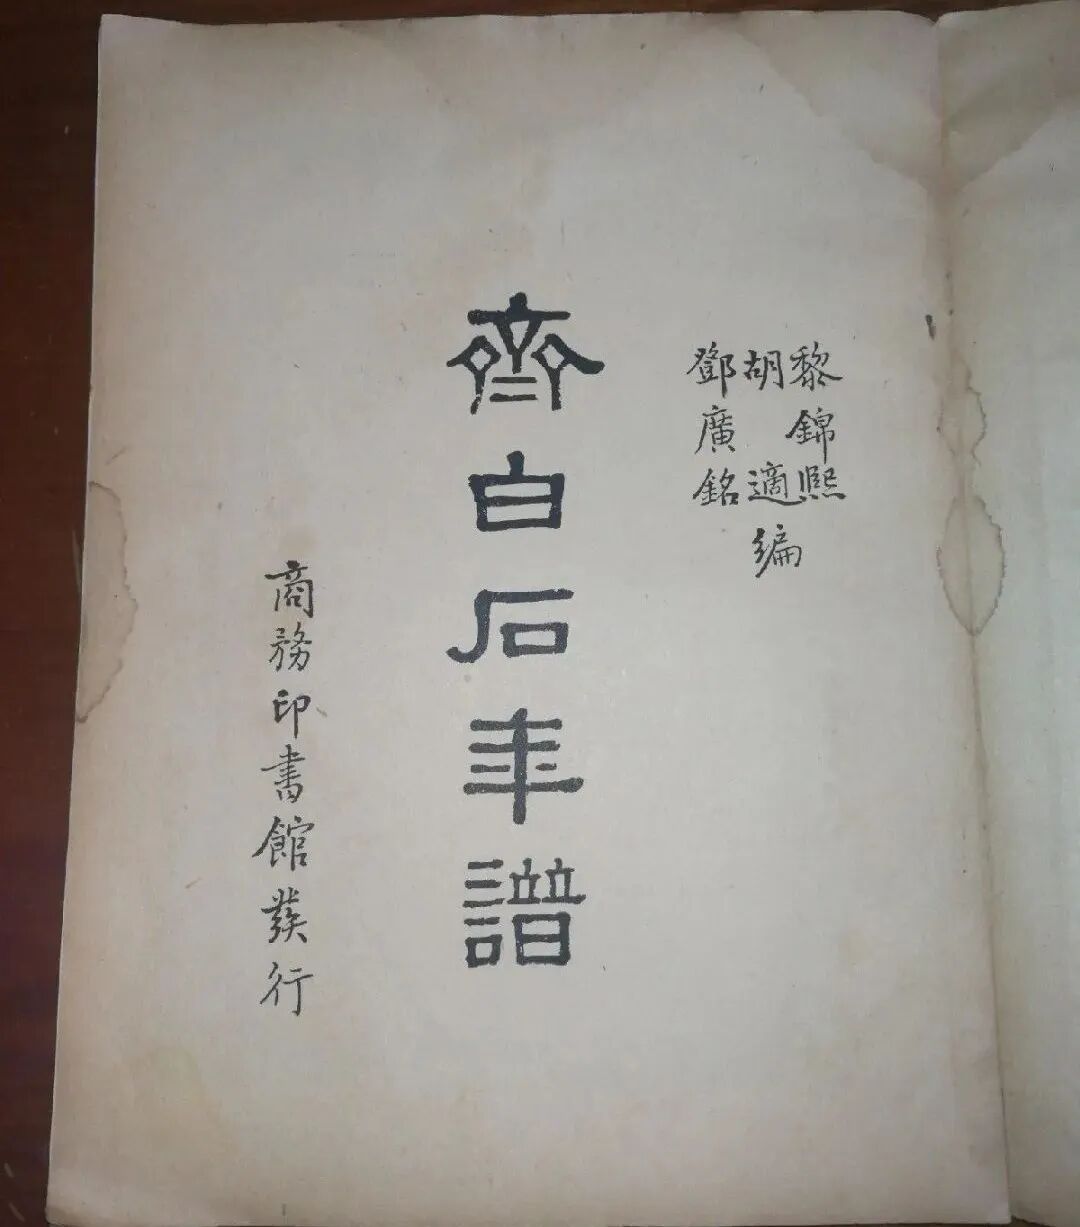 黎錦熙
胡適
鄧廣銘
編
齊白石年譜
商務印書館發行